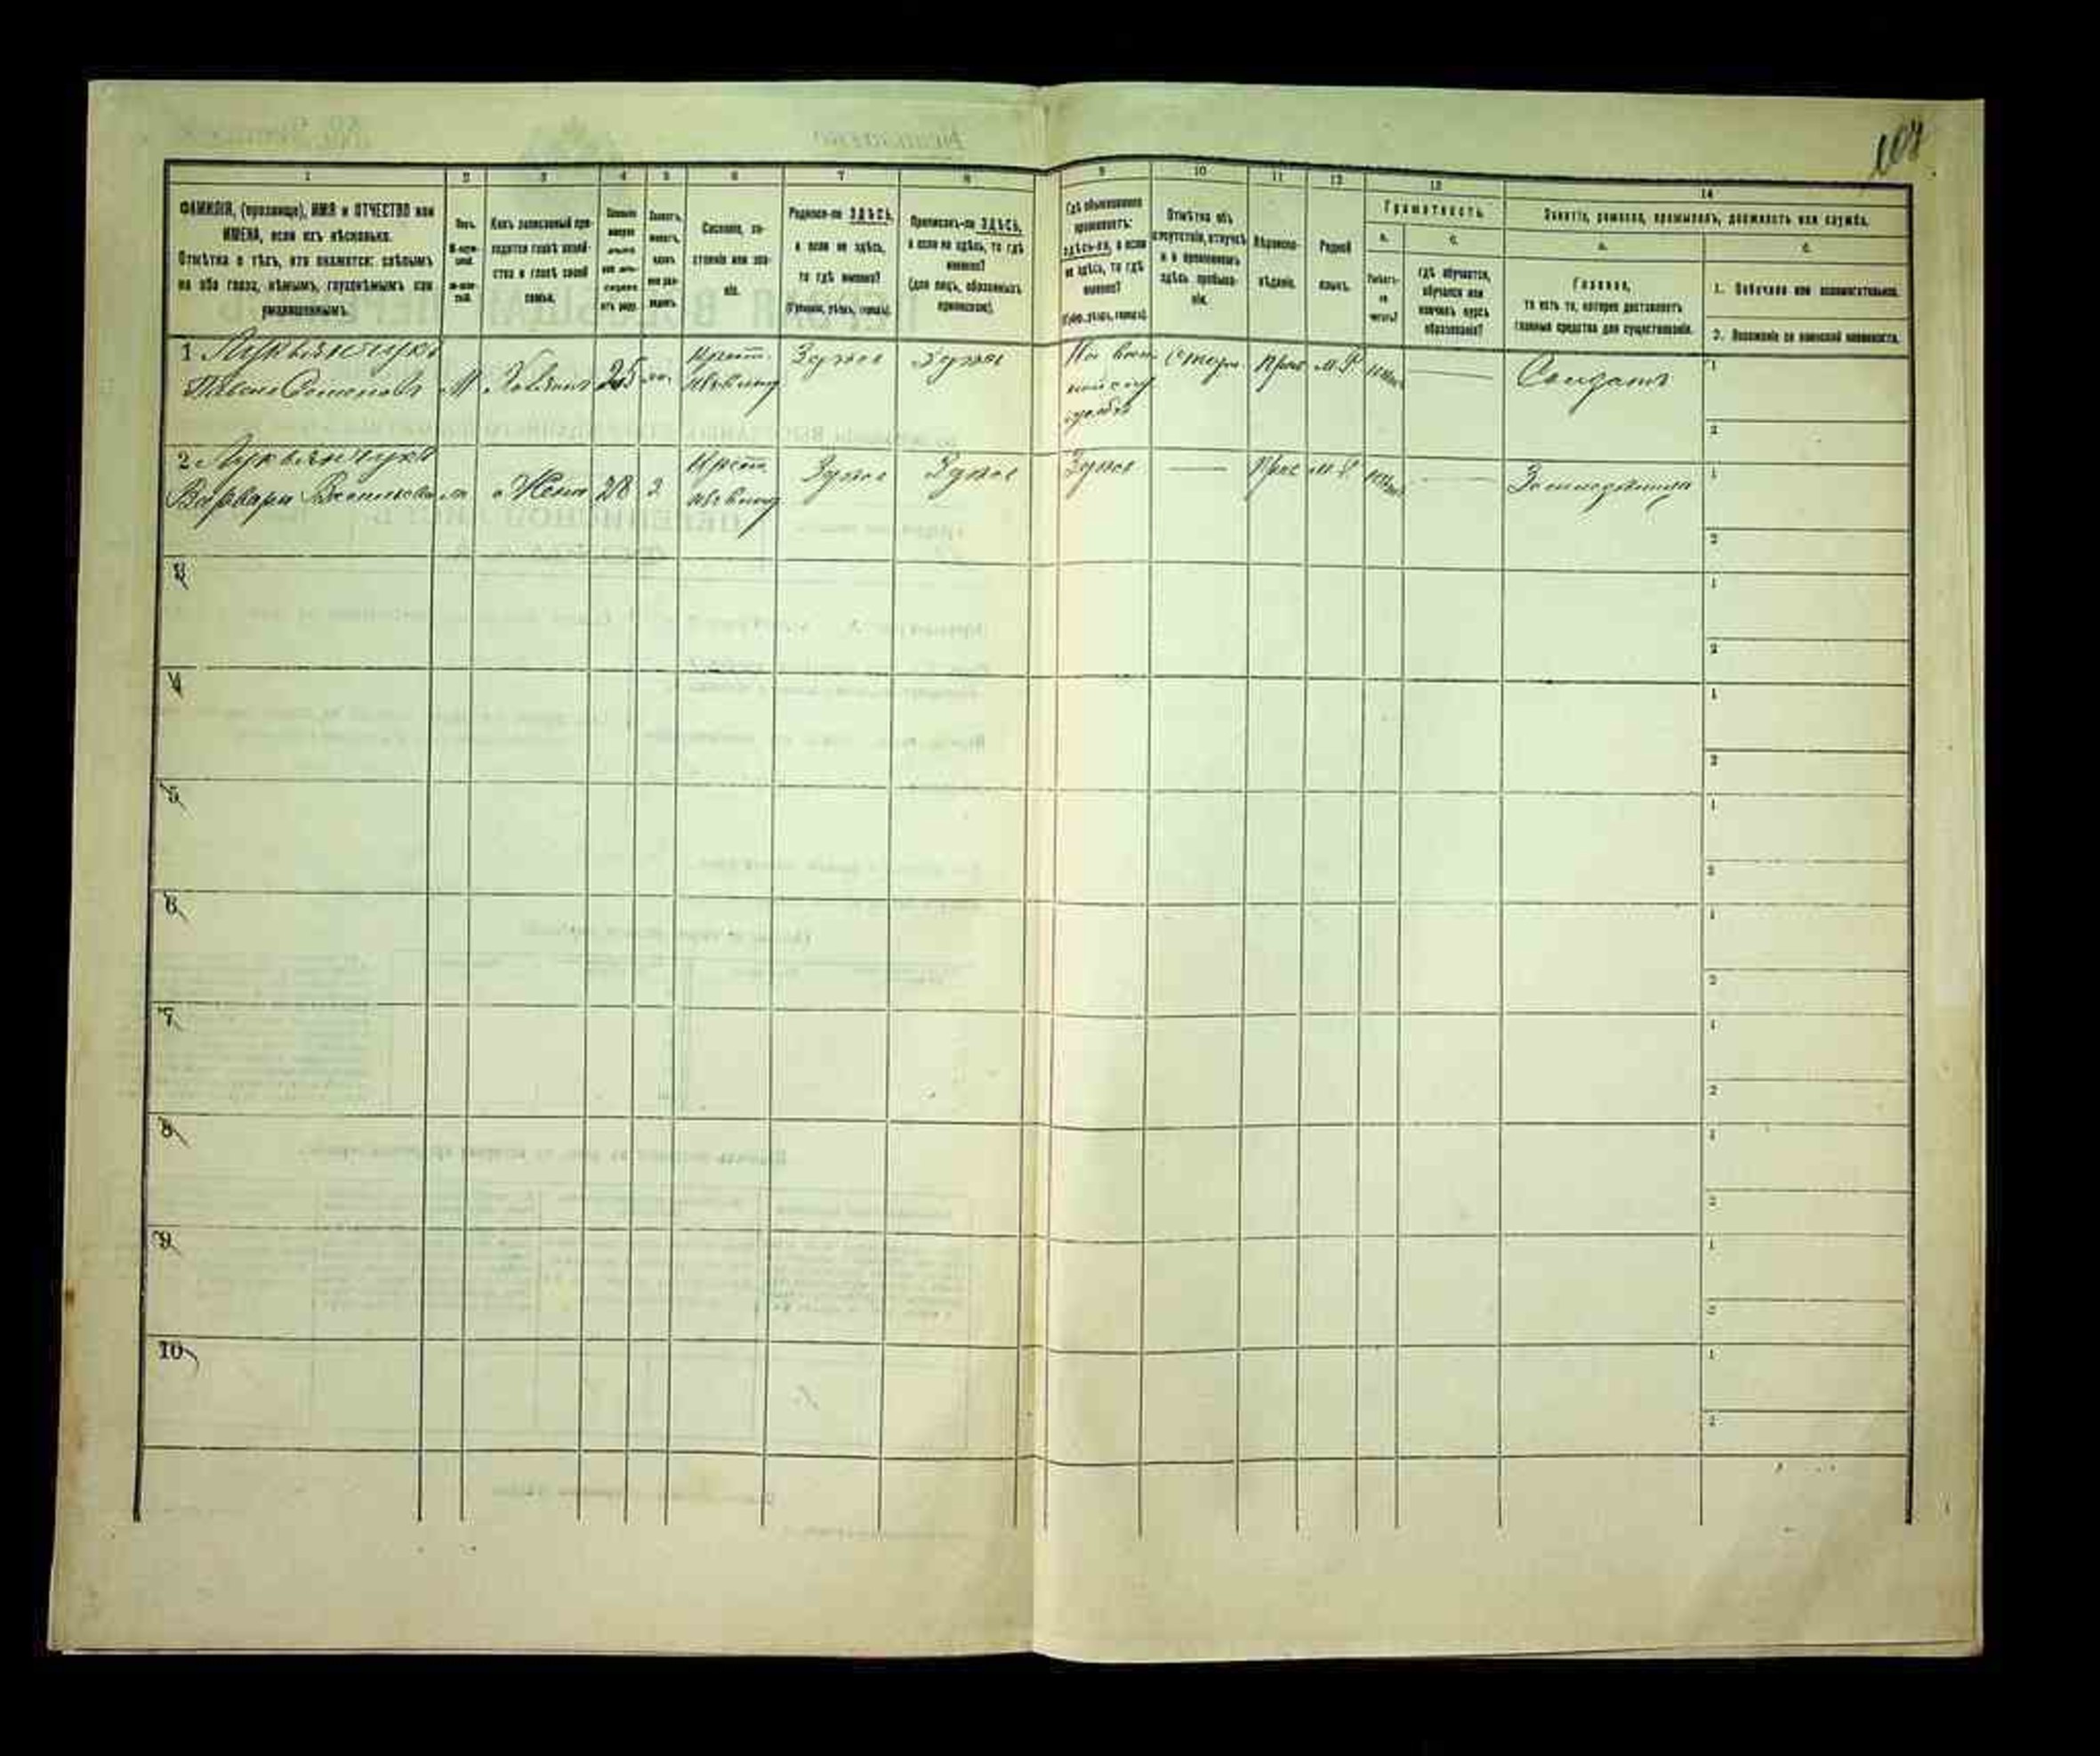 108
1 2 3 4 5 6 7 8 9 10 11 12 13 14
ФАМИЛІЯ, (прозвище), ИМЯ и ОТЧЕСТВО или
ИМЕНА, если ихъ нѣсколько.
Отмѣтка о тѣхъ, кто окажется: слѣпымъ
на оба глаза, нѣмымъ, глухонѣмымъ или
умалишеннымъ.
Полъ.
М-муж-
ской.
Ж-жен-
скій.
Какъ записанный при-
ходится главѣ хозяй-
ства и главѣ своей
семьи.
Сколько
минуло
лѣтъ
или мѣ-
сяцевъ
отъ роду.
Холостъ,
женатъ,
вдовъ
или раз-
веденъ.
Сословіе, со-
стояніе или зва-
ніе.
Родился-ли ЗДѢСЬ,
а если не здѣсь,
то гдѣ именно?
(Губернія, уѣздъ, городъ).
Приписанъ-ли ЗДѢСЬ,
а если не здѣсь, то гдѣ
именно?
(для лицъ, обязанныхъ
припискою).
Гдѣ обыкновенно
проживаетъ:
здѣсь-ли, а если
не здѣсь, то гдѣ
именно?
(Губер., уѣздъ, городъ).
Отмѣтка объ
отсутствіи, отлучкѣ
и о временномъ
здѣсь пребыва-
ніи.
Вѣроиспо-
вѣданіе.
Родной
языкъ.
Грамотность.
а.
Умѣетъ-
ли
читать?
б.
гдѣ обучается,
обучался или
кончилъ курсъ
образованія?
Занятіе, ремесло, промыселъ, должность или служба.
а.
Главное,
то есть то, которое доставляетъ
главныя средства для существованія.
б.
1. Побочное или вспомогательное.
2. Положеніе по воинской повинности.
1 Лукьянчукъ
Павелъ Семеновъ М Хозяинъ 25 Крест. Здѣсь Здѣсь Прав М.Р. Солдатъ
2 Лукьянчукъ
Варвара Васильева ж Жена 28 Крест. Здѣсь Здѣсь Здѣсь — Прав М.Р. —
3
4
5
6
7
8
9
10